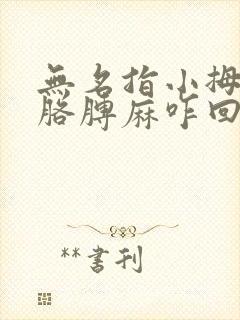 無名指小拇
胳膊麻咋回
**書刊